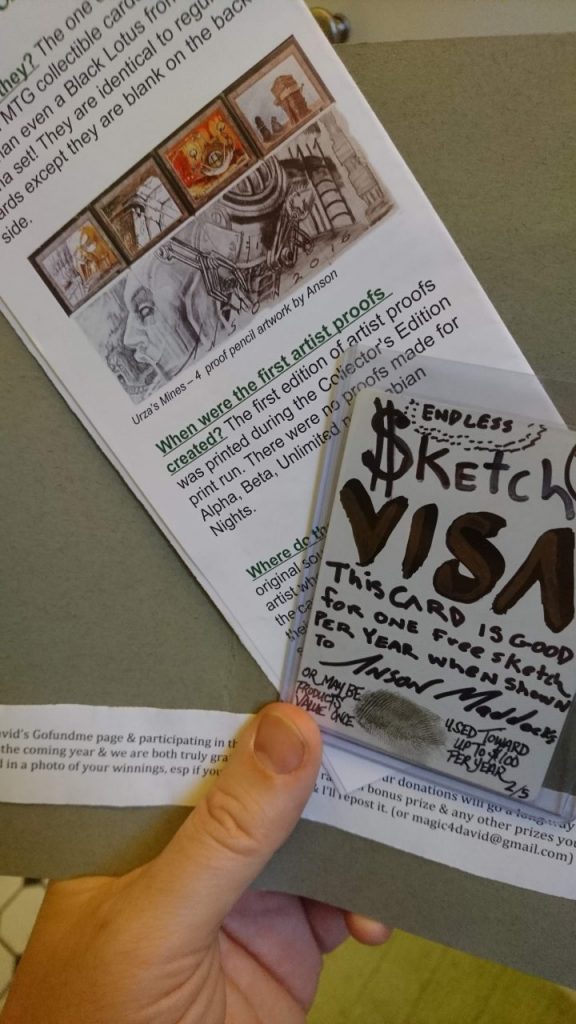 they? The one
MTG collectible cards
than even a Black Lotus from
set! They are identical to regu
ards except they are blank on the back
side.
2016
Urza's Mines – 4 proof pencil artwork by Anson
When were the first artist proofs
created? The first edition of artist proofs
was printed during the Collector's Edition
print run. There were no proofs made for
Alpha, Beta, Unlimited
bian
Nights.
Where do the
original
artist
the
ENDLESS
$KEtCh
VISA
THIS CARD IS GOOD
FOR ONE FREE SKETCH
PER YEAR WHEN SHOWN
TO
ANSON Maddocks
OR MAY BE
PRODUCTS
VALUE ONCE
USED TOWARD
UP TO $100
PER YEAR
2/5
avid's Gofundme page & participating in th
the coming year & we are both truly gra
d in a photo of your winnings, esp if you
ur donations will go a long way
bonus prize & any other prizes you
& I'll repost it. (or magic4david@gmail.com)